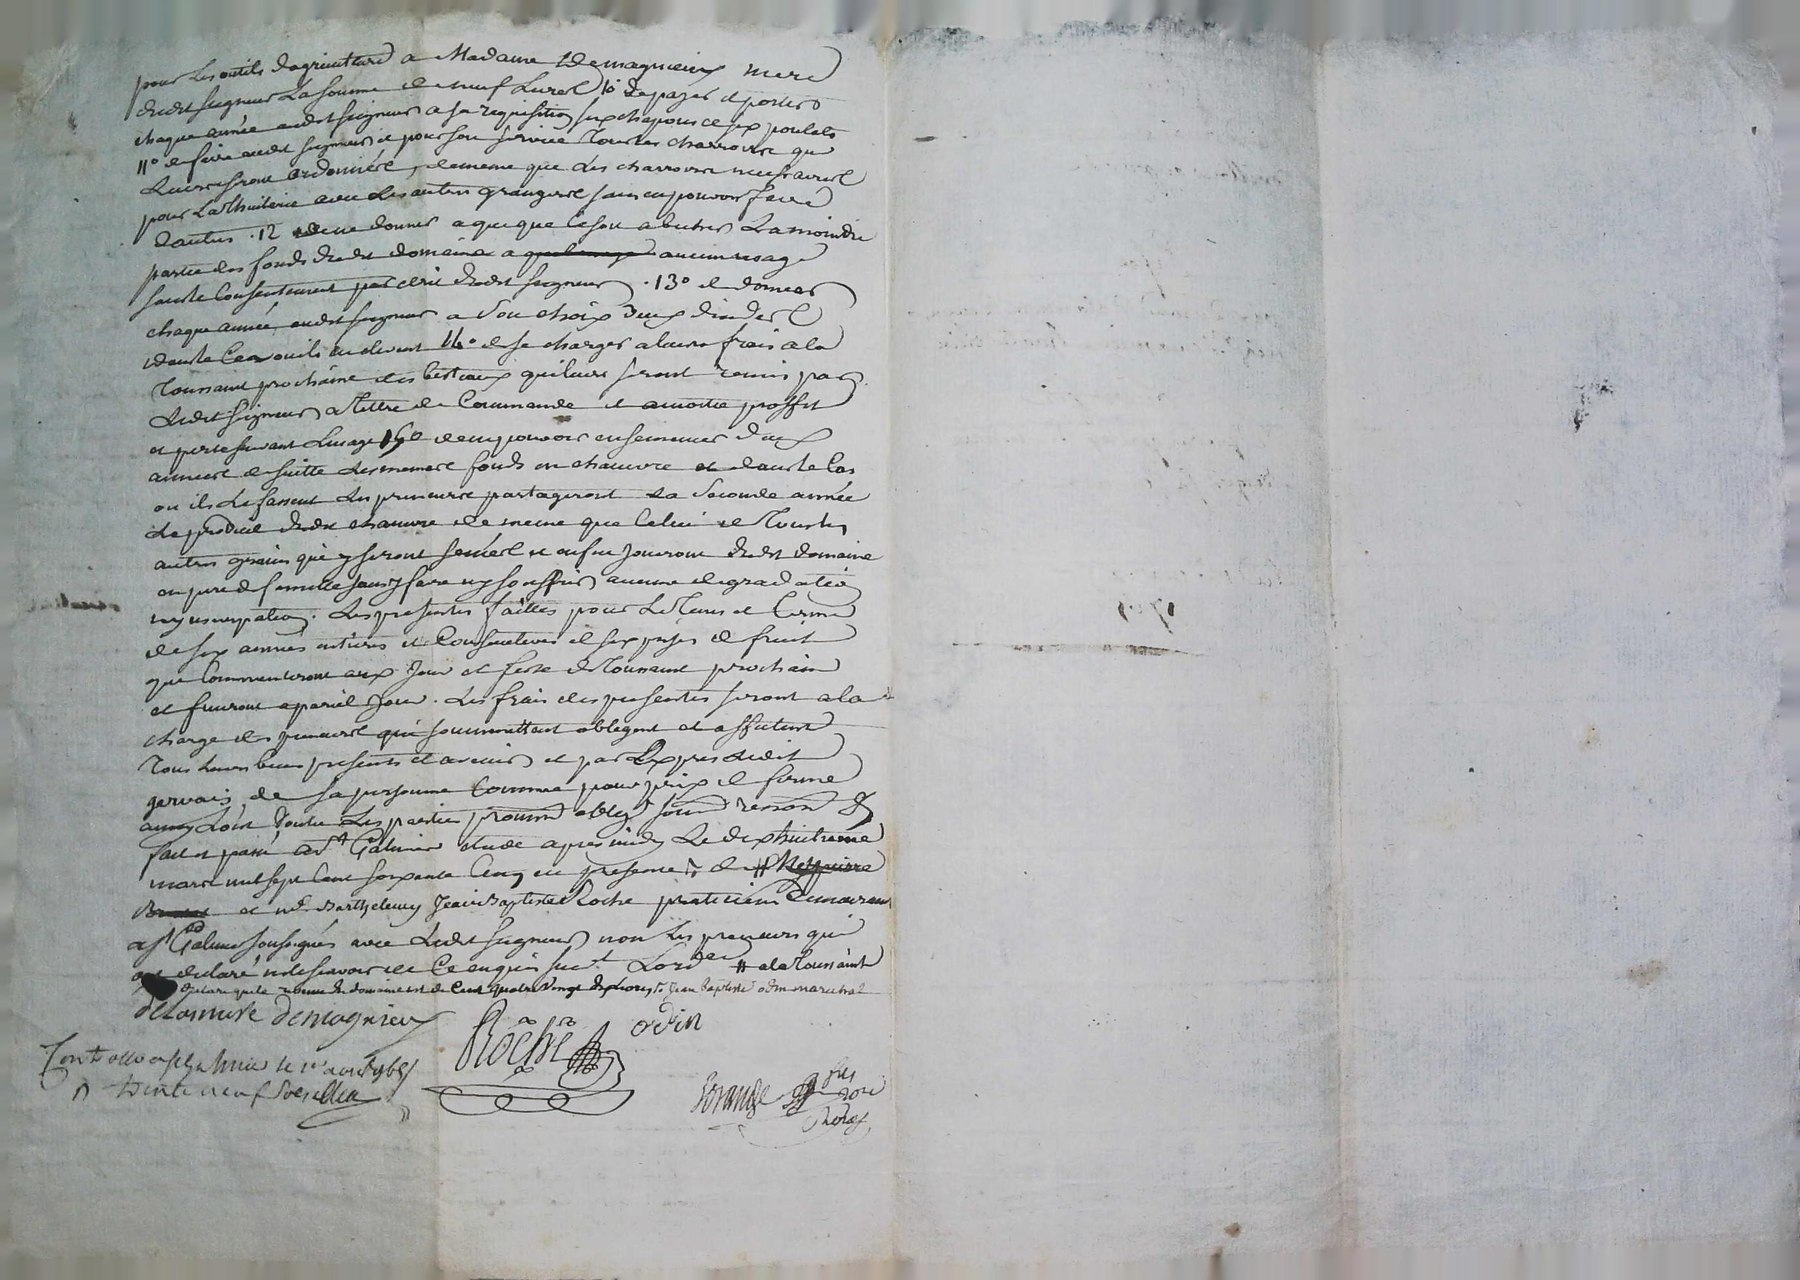 pour les outils dagriculture a Madame Demagnieux mere
dudit seigneur La somme de neuf Livres 10° de payer et porter
chaque année audit seigneur a sa requisition six chapons et six poulets
11° de faire audit seigneur et pour son service Toutes charroirs qui
Leurs seront ordonnées, de meme que des charroirs necessaires
pour La Thuilerie avec Les autres grangers sans en pouvoir faire
dautres . 12 de ne donner a qui que ce soit a butiner La moindre
partie des fonds dudit domaine a aucun usage
sans le Consentement par ecrit dudit seigneur . 13° de donner
chaque année audit seigneur a Son choix deux dindes
dans le Cas ou ils en elevent 14° de se charger a Leurs frais a la
Toussaint prochaine des bestiaux qui Leurs seront remis par
Ledit seigneur a Tittre de Commande et a moitie proffit
et perte suivant Lusage 15° de ne pouvoir ensemencer deux
années de suitte Les memes fonds en chanvre et dans le Cas
ou ils Le fassent Les preneurs partageront La Seconde année
Le produit dudit chanvre de meme que Celui de Tous les
autres grains qui y seront semées et enfin Jouiront dudit domaine
en pere de famille sans y faire ny souffrir aucune degradation
ny usurpation. Les presentes faittes pour Le Tems et Terme
de six années entieres et Consecutives et six prises de fruit
qui Commenceront aux Jour et feste de Toussaint prochain
et finiront a pareil Jour . Les frais des presentes seront a la
charge des preneurs qui soummettent obligent et affectent
Tous Leurs biens presents et avenir et par Exprès Ledit
gervais de sa personne Comme pour prix de ferme
ainsy Lont Voulu Les parties promis oblig.t soum renon
fait et passé a St Galmier etude apres midy Le dix huitieme
mars mil sept Cent soixante Cinq en presence de #
et me. Barthelemy Jean Baptiste Roche praticien Demeurant
a St Galmier soussignés avec Ledit seigneur non Les preneurs qui
ont declaré ne le scavoir de Ce enquis # a la Toussaint
declare que le revenu du domaine est de Cent quatre Vingt dix Livres Jean Baptiste odin marechal
delasnure demagnieux
Roche odin
Controllé a St galmier le 1er avril 1765
R trente neuf sols